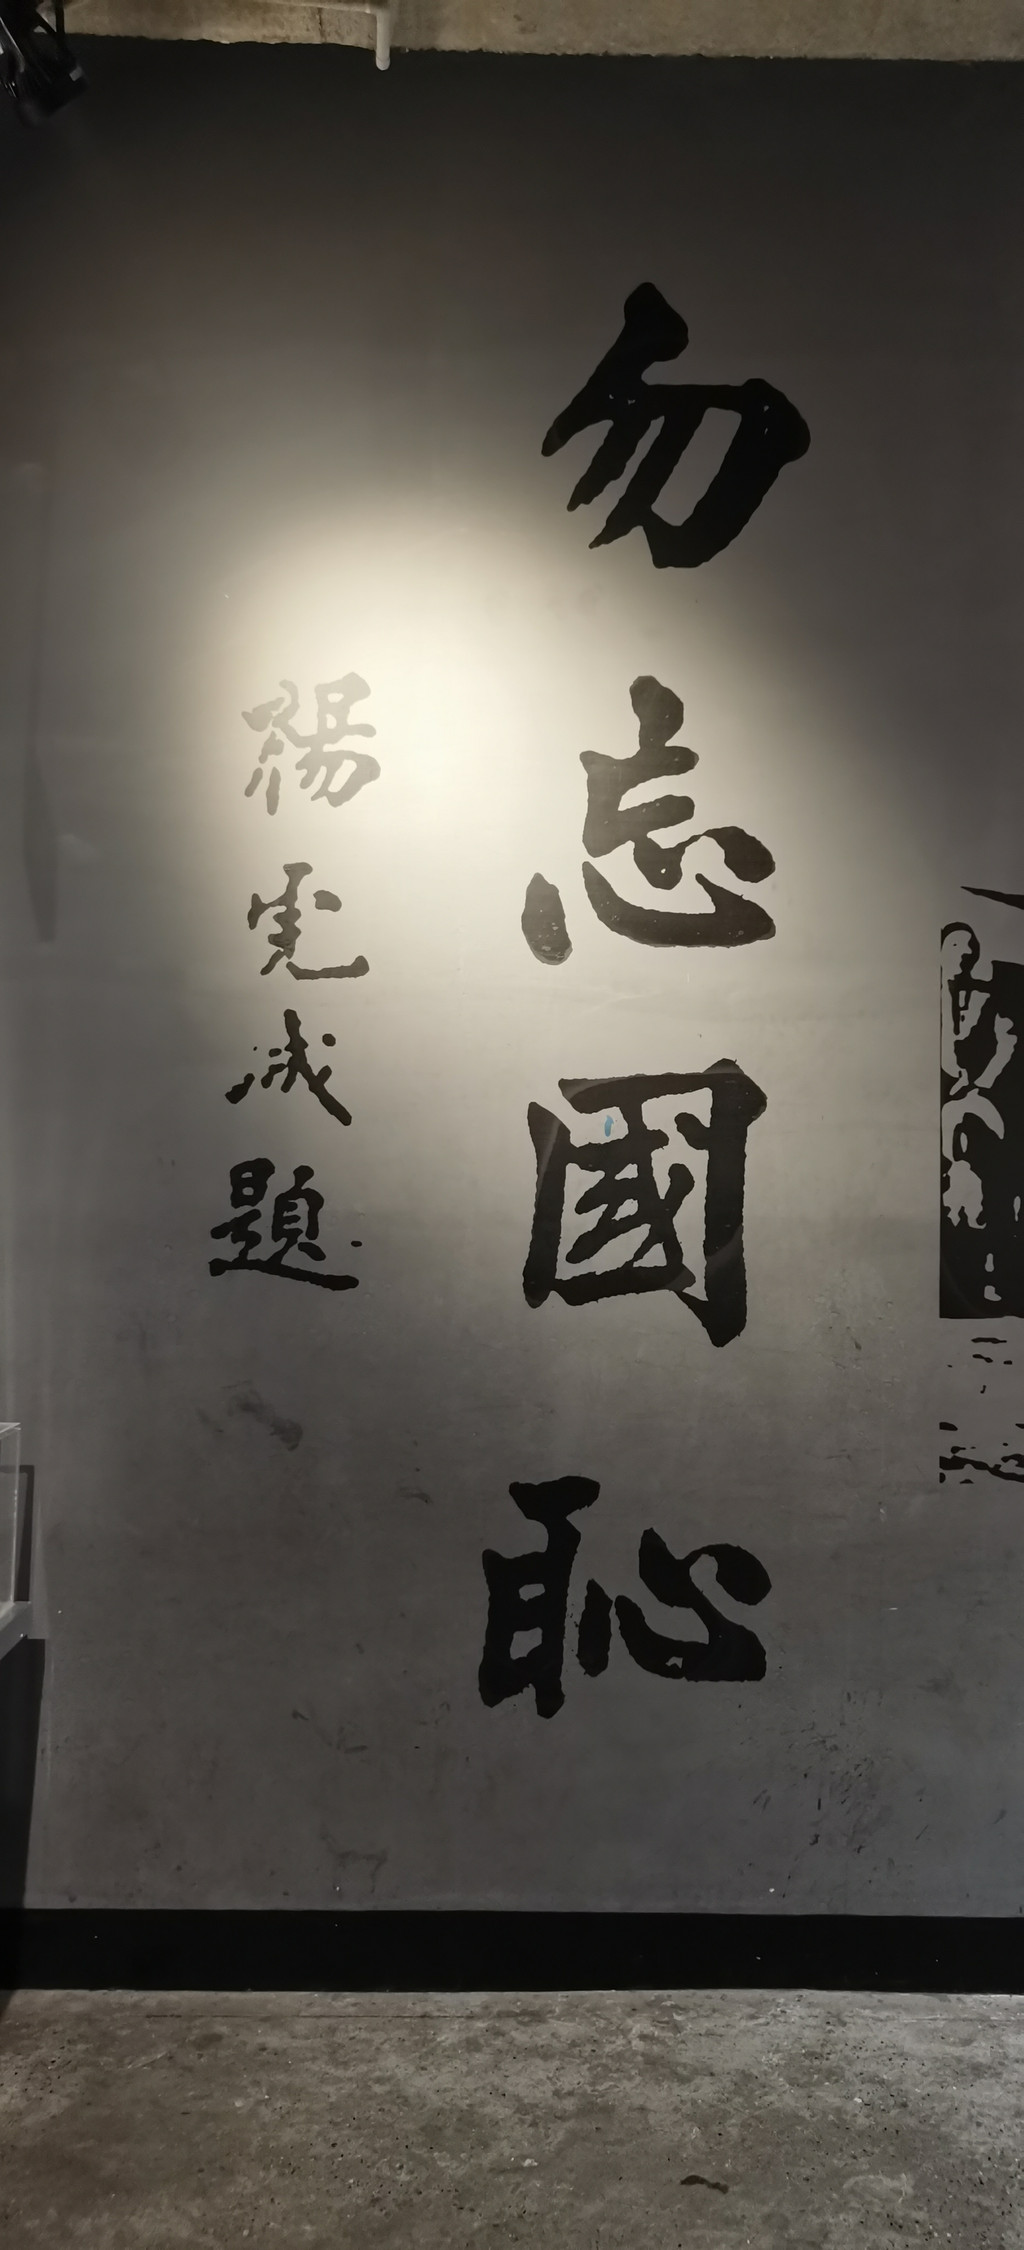 勿忘國恥
楊虎城題